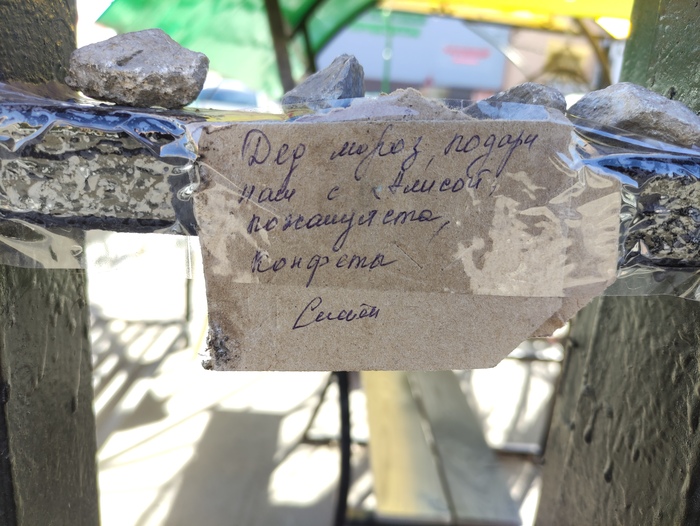 Дед мороз, подари
нам с Алисой,
пожалуйста,
конфеты